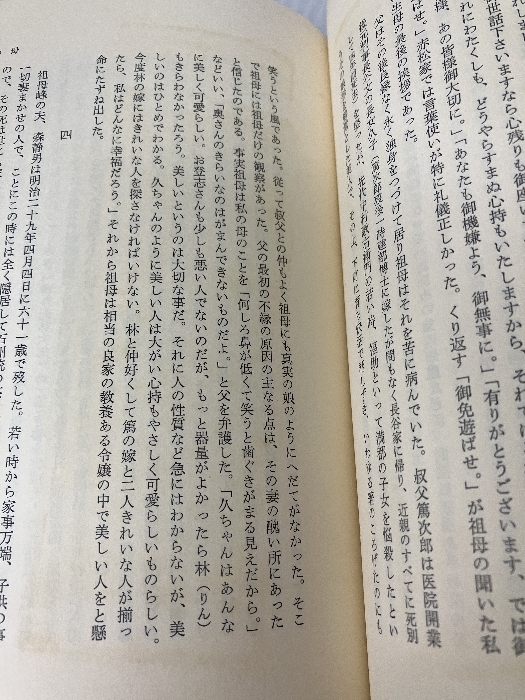 世話下さいますなら心残りも御座
れにわたくしも、どうやらすまぬ心持もいたしますから、それ
様、あの皆様御大切に。」「あなたも御機嫌よう、御無事に。」「有りがとうございます、では御
はせ。」赤松家では言葉使いが特に礼儀正しかった。くり返す「御免遊ばせ。」が祖母の聞いた私
生母の最後の挨拶であった。
父はその後長く永く独身をつづけて居り祖母はそれを苦に病んでいた。叔父篤次郎は医院開業
に嫁したが間もなく長谷家に帰り、近親のすべてに死別
笑うという風であった。従って叔父との仲もよく祖母にも真実の娘のようにへだてがなかった。そこ
で祖母には祖母だけの観察があった。父の最初の不縁の原因の主なる点は、その妻の醜い所にあった
と信じたのである。事実祖母は私の母のことを「何しろ鼻が低くて笑うと歯ぐきがまる見えだから。」
などいい、「奥さんのきらいなのはがまんできないものだよ。」と父を弁護した。「久ちゃんはあんな
に美しく可愛らしい。お登志さんも少しも悪い人でないのだが、もっと器量がよかったら林（りん）
もきらわなかったろう。美しいというのは大切な事だ。それに人の性質など急にはわからないが、美
しいのはひとめでわかる。久ちゃんのように美しい人は大がい心持もやさしく可愛らしいものらしい。
今度林の嫁にはきれいな人を探さなければいけない。林と仲好くして篤の嫁と二人きれいな人が揃っ
たら、私はどんなに幸福だろう。」それから祖母は相当の良家の教養ある令嬢の中で美しい人をと懸
命にたずね出した。
四
祖母峰の夫、森静男は明治二十九年四月四日に六十一歳で歿した。若い時から家事万端、子供の事
一切妻まかせの人で、ことにこの時には全く隠居して
ので、その死は